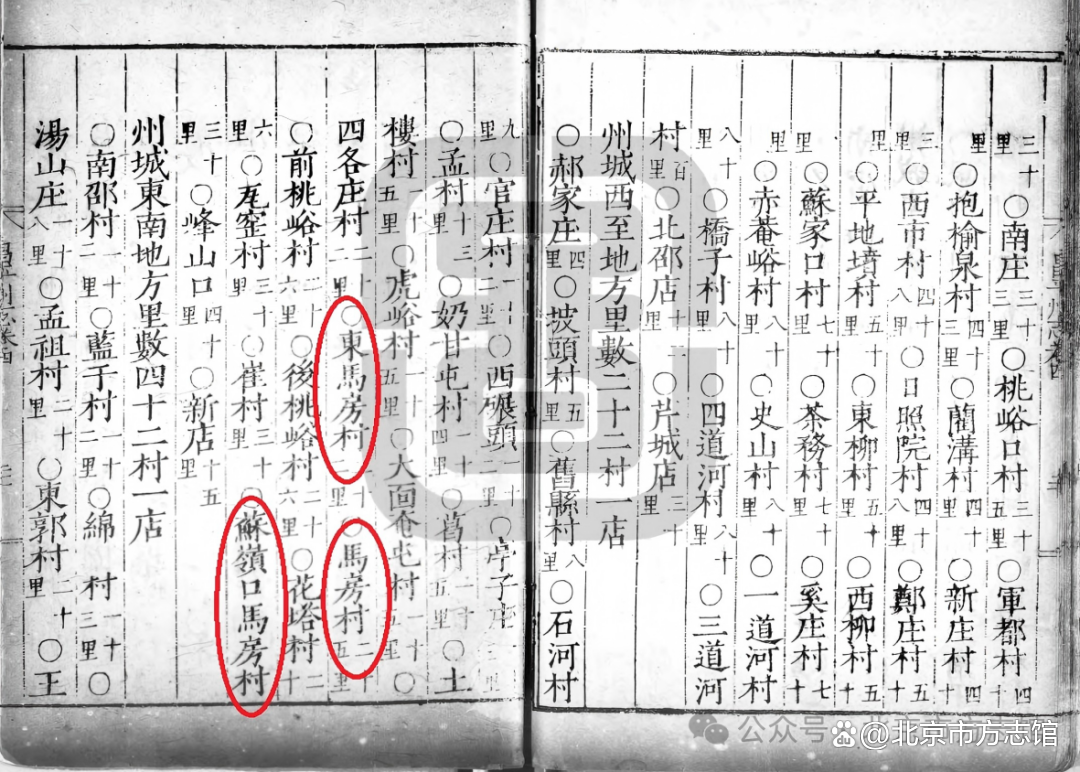 三十里○南庄三十三里○桃峪口村三十五里○軍都村四十
里○抱榆泉村四十三里○藺溝村四十里○新庄村四十
三里○西市村四十八里○日照院村四十八里○鄭庄村五十
里○平地墳村五十里○東柳村五十里○西柳村五十
里○蘇家口村七十里○茶務村七十里○奚庄村七十
里○赤菴峪村八十里○史山村八十里○一道河村
八十里○橋子村八十里○四道河村八十里○三道河
村百里○北邵店十二里○芹城店三十里
州城西至地方里數二十二村一店
○郝家庄四里○坡頭村五里○舊縣村八里○石河村
九里○官庄村一十二里○西碾頭一十二里○亭子庄
○孟村十三里○奶甘屯村一十四里○葛村一十五里○土
樓村一十五里○虎峪村一十五里○大囬奄屯村一十五里○
四各庄村二十里○東馬房村二十里○馬房村二十五里
○前桃峪村二十六里○後桃峪村二十六里○花塔村二十
六里○瓦窑村三十里○崔村三十里○蘇嶺口馬房村
三十里○峰山口四十里○新店十五里
州城東南地方里數四十二村一店
○南邵村一十二里○藍子村一十二里○綿村一十三里○
湯山庄一十八里○孟祖村二十里○東郭村二十里○王
公众号
@北京市方志馆